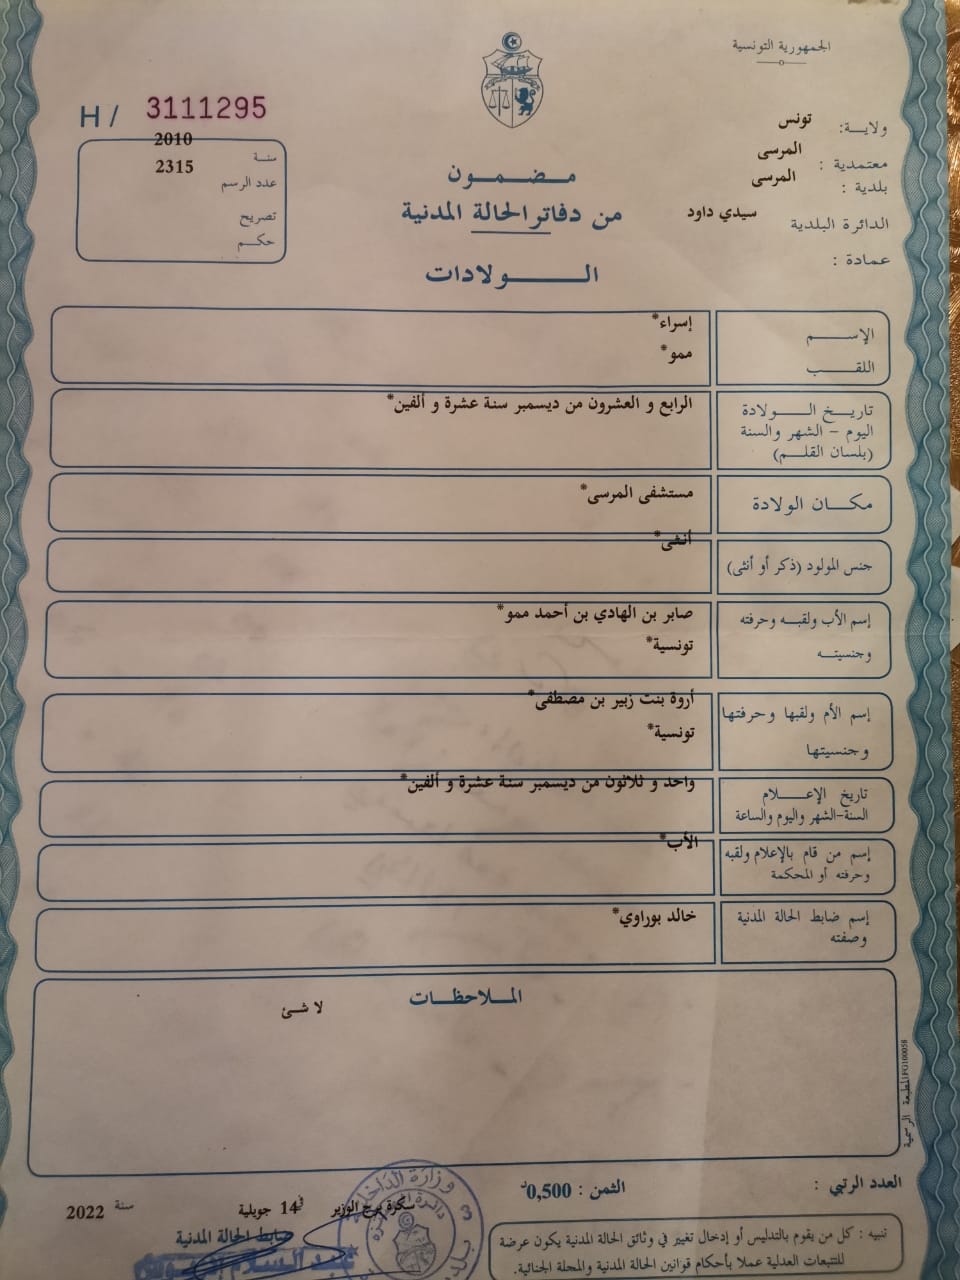 الجمهورية التونسية
H / 3111295
ولاية: تونس
معتمدية : المرسى
بلدية : المرسى
الدائرة البلدية سيدي داود
عمادة :
سنة 2010
عدد الرسم 2315
تصريح
حكم
مضمون
من دفاتر الحالة المدنية
الولادات
الإسم إسراء*
اللقب ممو*
تاريخ الولادة الرابع و العشرون من ديسمبر سنة عشرة و ألفين*
اليوم - الشهر والسنة
(بلسان القلم)
مكان الولادة مستشفى المرسى*
جنس المولود (ذكر أو أنثى) أنثى*
إسم الأب ولقبه وحرفته صابر بن الهادي بن أحمد ممو*
وجنسيته تونسية*
إسم الأم ولقبها وحرفتها أروة بنت زبير بن مصطفى*
وجنسيتها تونسية*
تاريخ الإعلام واحد و ثلاثون من ديسمبر سنة عشرة و ألفين*
السنة-الشهر واليوم والساعة
إسم من قام بالإعلام ولقبه الأب*
وحرفته أو المحكمة
إسم ضابط الحالة المدنية خالد بوراوي*
وصفته
الملاحظات
لا شئ
المطبعة الرسمية
العدد الرتبي :
الثمن : 0,500د
سكرة برج الوزير في 14 جويلية سنة 2022
ضابط الحالة المدنية
وزارة الداخلية
تنبيه : كل من يقوم بالتدليس أو إدخال تغيير في وثائق الحالة المدنية يكون عرضة
للتتبعات العدلية عملا بأحكام قوانين الحالة المدنية والمجلة الجنائية.